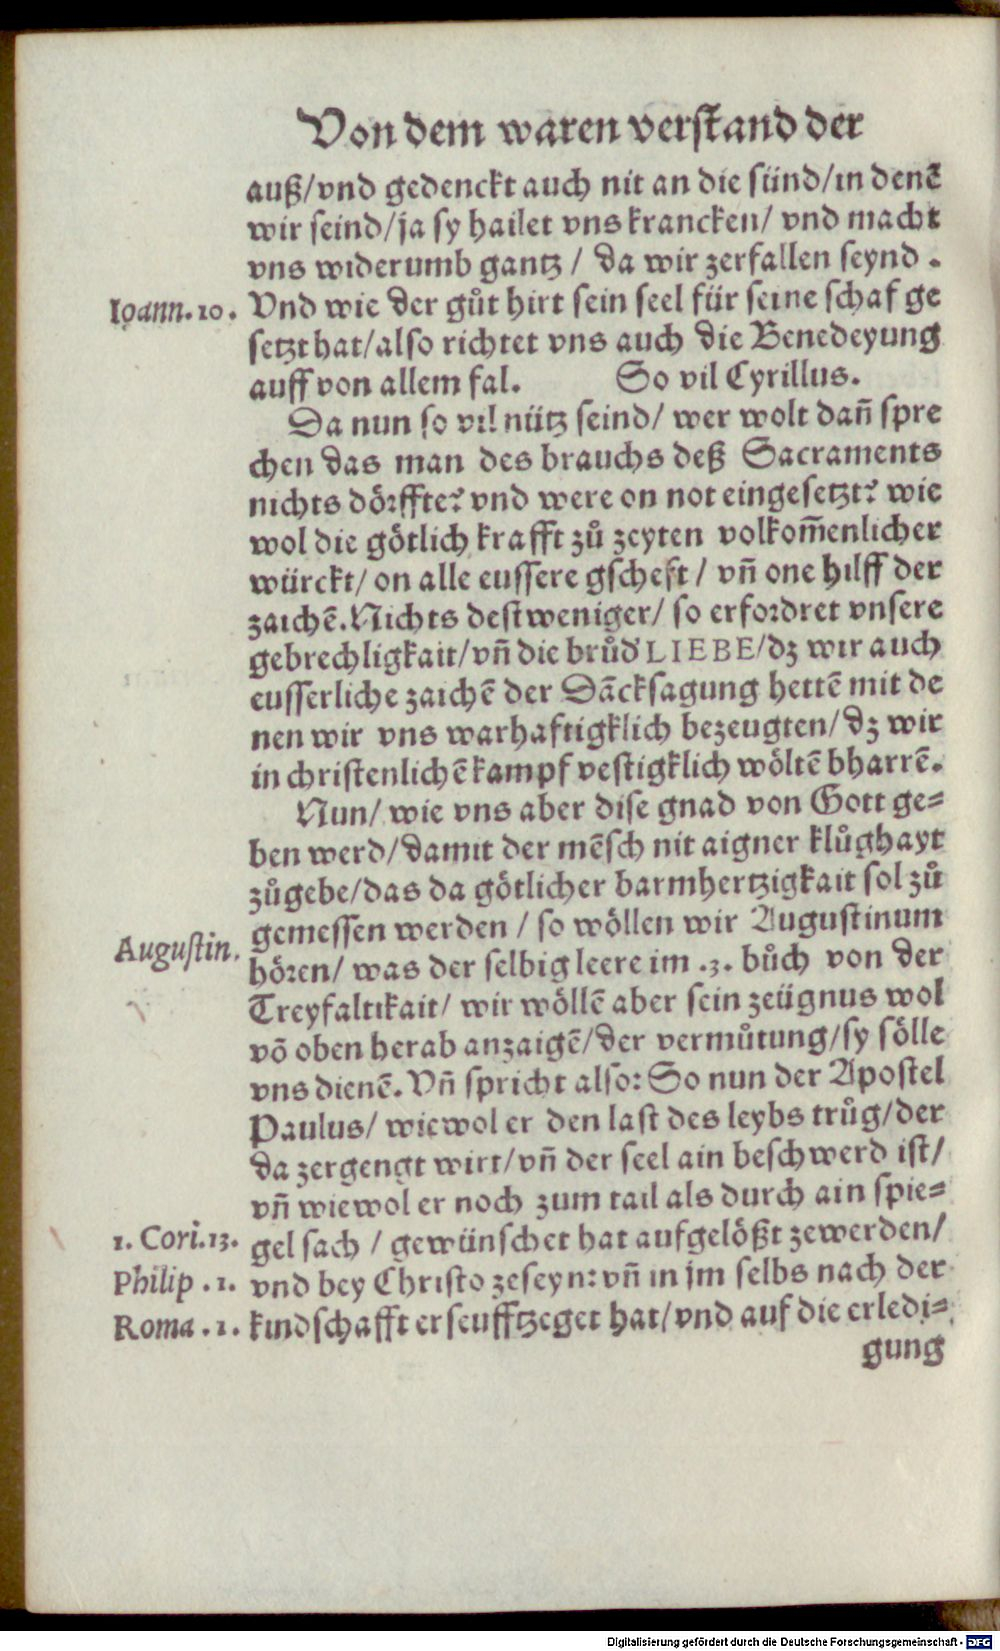 Von dem waren verstand der
auß/vnd gedenckt auch nit an die sünd/in denẽ
wir seind/ja sy hailet vns krancken/ vnd macht
vns widerumb gantz / da wir zerfallen seynd .
Ioann. 10. Vnd wie der gůt hirt sein seel für seine schaf ge
setzt hat/also richtet vns auch die Benedeyung
auff von allem fal. So vil Cyrillus.
Da nun so vil nütz seind/ wer wolt dañ spre
chen das man des brauchs deß Sacraments
nichts dörffte? vnd were on not eingesetzt? wie
wol die götlich krafft zů zeyten volkom̃enlicher
würckt/ on alle eussere gscheft / vñ one hilff der
zaichẽ. Nichts destweniger/ so erfordret vnsere
gebrechligkait/vñ die brůd' LIEBE/dz wir auch
eusserliche zaichẽ der Dãcksagung hettẽ mit de
nen wir vns warhaftigklich bezeugten/ dz wir
in christenlichẽ kampf vestigklich wöltẽ bharrẽ.
Nun/ wie vns aber dise gnad von Gott ge=
ben werd/damit der mẽsch nit aigner klůghayt
zůgebe/das da götlicher barmhertzigkait sol zů
gemessen werden / so wöllen wir Augustinum
Augustin. hören/ was der selbig leere im .3. bůch von der
Treyfaltikait/ wir wöllẽ aber sein zeügnus wol
võ oben herab anzaigẽ/der vermůtung/sy sölle
vns dienẽ. Vñ spricht also: So nun der Apostel
Paulus/ wiewol er den last des leybs trůg/der
da zergengt wirt/vñ der seel ain beschwerd ist/
vñ wiewol er noch zum tail als durch ain spie=
1. Cori. 13. gel sach / gewünschet hat aufgelößt zewerden/
Philip . 1. vnd bey Christo zeseyn: vñ in jm selbs nach der
Roma . 1. kindschafft erseufftzeget hat/vnd auf die erledi=
gung
Digitalisierung gefördert durch die Deutsche Forschungsgemeinschaft - DFG